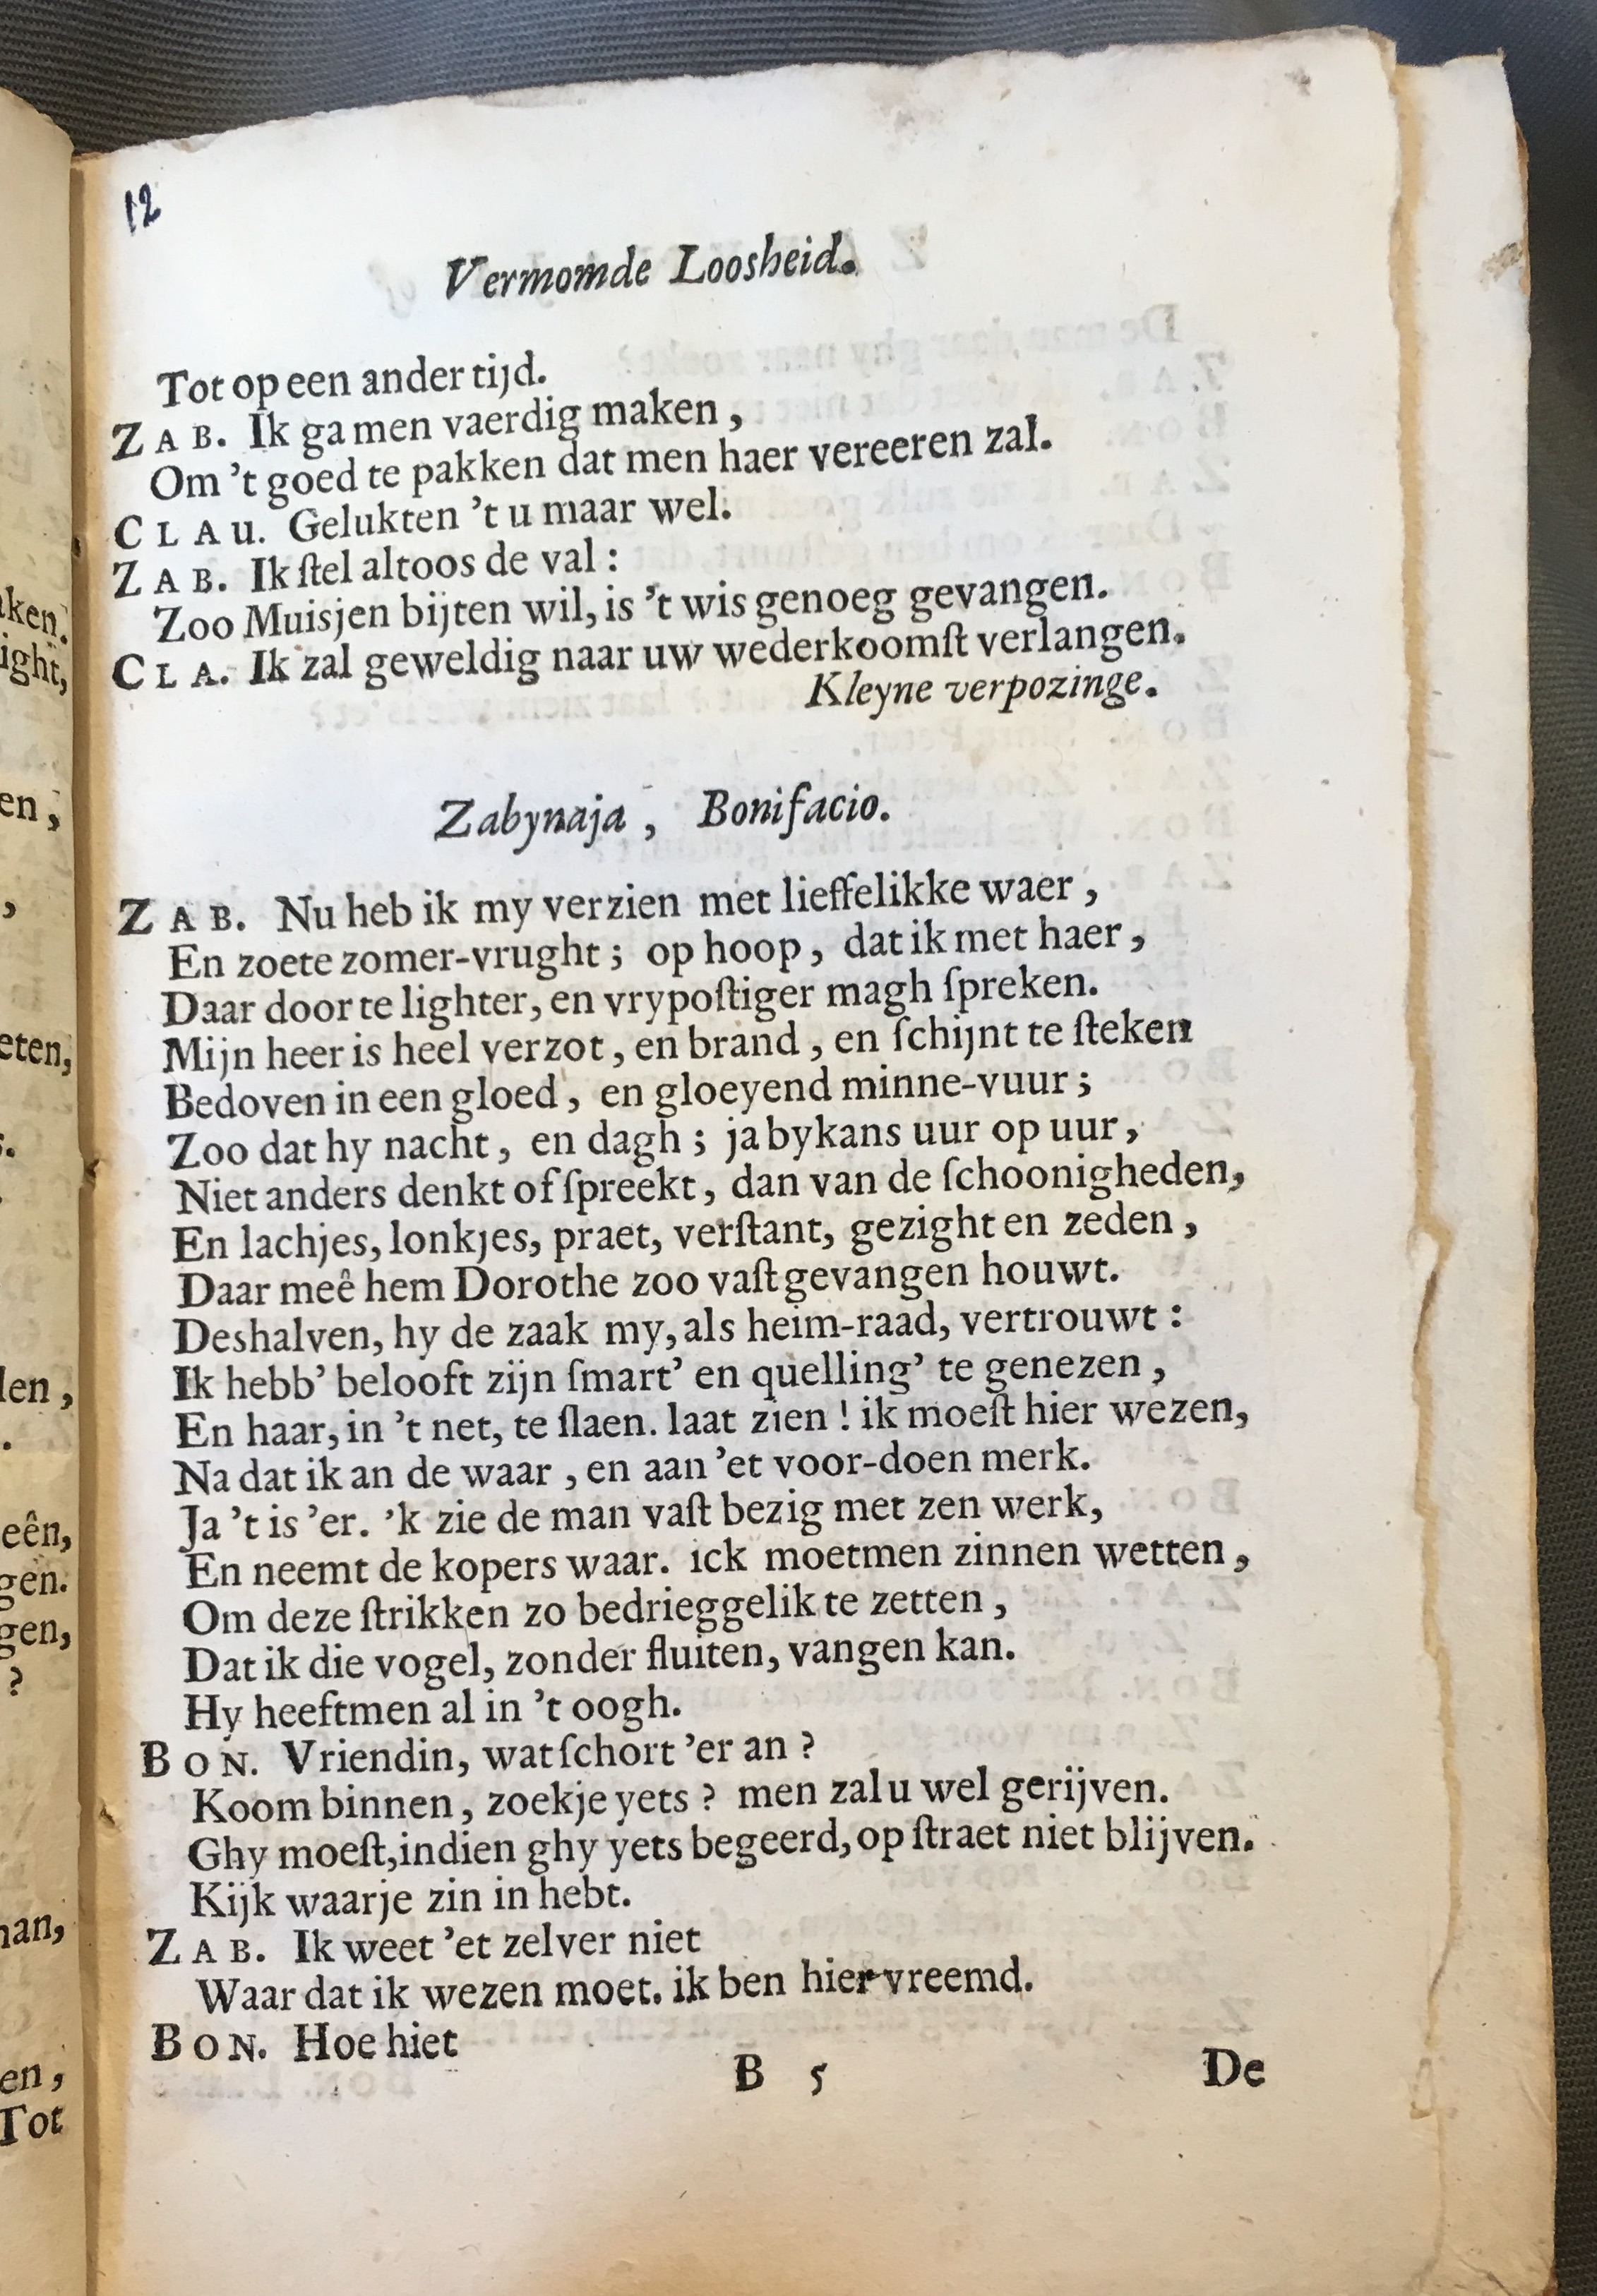 12
Vermomde Loosheid.
Tot op een ander tijd.
ZAB. Ik ga men vaerdig maken,
Om 't goed te pakken dat men haer vereeren zal.
CLAu. Gelukten 't u maar wel.
ZAB. Ik ſtel altoos de val:
Zoo Muisjen bijten wil, is 't wis genoeg gevangen.
CLA. Ik zal geweldig naar uw wederkoomſt verlangen.
Kleyne verpozinge.
Zabynaja, Bonifacio.
ZAB. Nu heb ik my verzien met lieffelikke waer,
En zoete zomer-vrught; op hoop, dat ik met haer,
Daar door te lighter, en vrypoſtiger magh ſpreken.
Mijn heer is heel verzot, en brand, en ſchijnt te ſteken
Bedoven in een gloed, en gloeyend minne-vuur;
Zoo dat hy nacht, en dagh; ja bykans uur op uur,
Niet anders denkt of ſpreekt, dan van de ſchoonigheden,
En lachjes, lonkjes, praet, verſtant, gezight en zeden,
Daar meê hem Dorothe zoo vaſt gevangen houwt.
Deshalven, hy de zaak my, als heim-raad, vertrouwt:
Ik hebb' belooft zijn ſmart' en quelling' te genezen,
En haar, in 't net, te ſlaen. laat zien! ik moeſt hier wezen,
Na dat ik an de waar, en aan 'et voor-doen merk.
Ja 't is 'er. 'k zie de man vaſt bezig met zen werk,
En neemt de kopers waar. ick moetmen zinnen wetten,
Om deze ſtrikken zo bedrieggelik te zetten,
Dat ik die vogel, zonder fluiten, vangen kan.
Hy heeftmen al in 't oogh.
BON. Vriendin, wat ſchort 'er an?
Koom binnen, zoekje yets? men zal u wel gerijven.
Ghy moeſt, indien ghy yets begeerd, op ſtraet niet blijven.
Kijk waarje zin in hebt.
ZAB. Ik weet 'et zelver niet
Waar dat ik wezen moet. ik ben hier vreemd.
BON. Hoe hiet
B 5 De